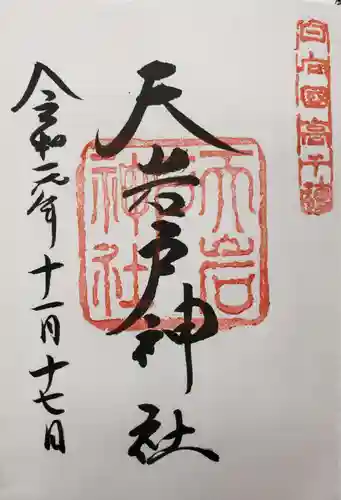 日向国高千穂
天岩戸神社
天岩戸神社
令和元年十一月十七日